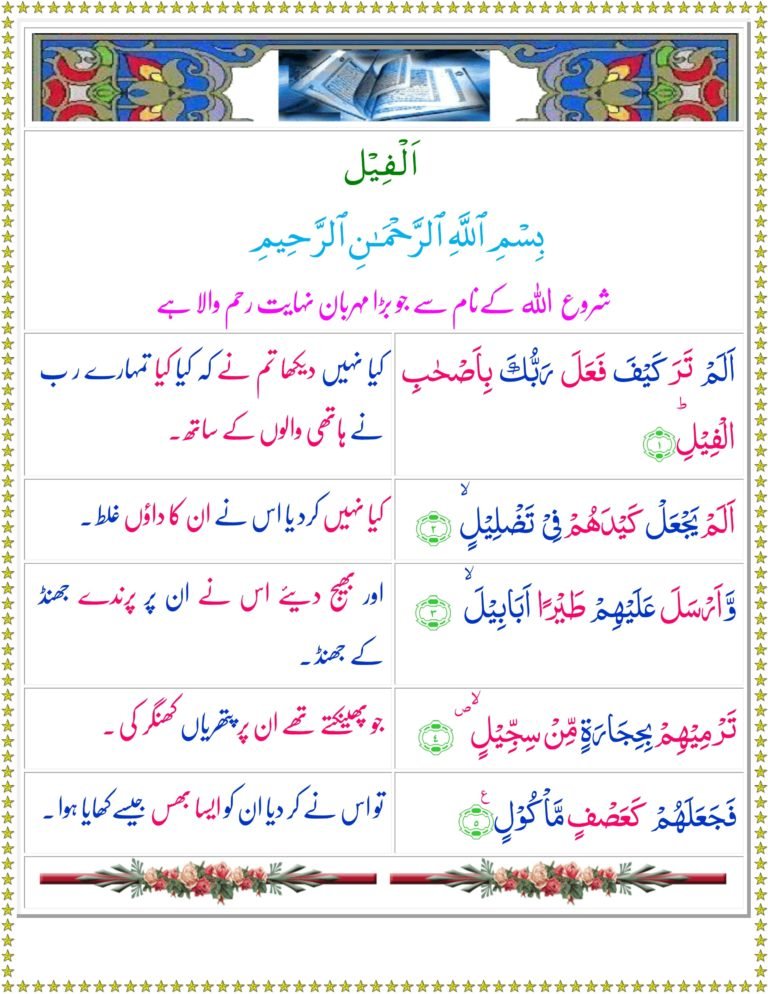 اَلْفِيْل
بِسْمِ ٱللَّهِ ٱلرَّحْمَـٰنِ ٱلرَّحِيمِ
شروع اللہ کے نام سے جو بڑا مہربان نہایت رحم والا ہے
اَلَمْ تَرَ كَيْفَ فَعَلَ رَبُّكَ بِاَصْحٰبِ
الْفِيْلِؕ ۱
کیا نہیں دیکھا تم نے کہ کیا کیا تمہارے رب
نے ہاتھی والوں کے ساتھ۔
اَلَمْ يَجْعَلْ كَيْدَهُمْ فِىْ تَضْلِيْلٍۙ ۲
کیا نہیں کردیا اس نے ان کا داؤں غلط۔
وَّاَرْسَلَ عَلَيْهِمْ طَيْرًا اَبَابِيْلَۙ ۳
اور بھیج دیئے اس نے ان پر پرندے جھنڈ
کے جھنڈ۔
تَرْمِيْهِمْ بِحِجَارَةٍ مِّنْ سِجِّيْلٍۙ ص ٤
جو پھینکتے تھے ان پر پتھریاں کھنگر کی۔
فَجَعَلَهُمْ كَعَصْفٍ مَّاْكُوْلٍ ع ۵
تو اس نے کر دیا ان کو ایسا بھس جیسے کھایا ہوا۔